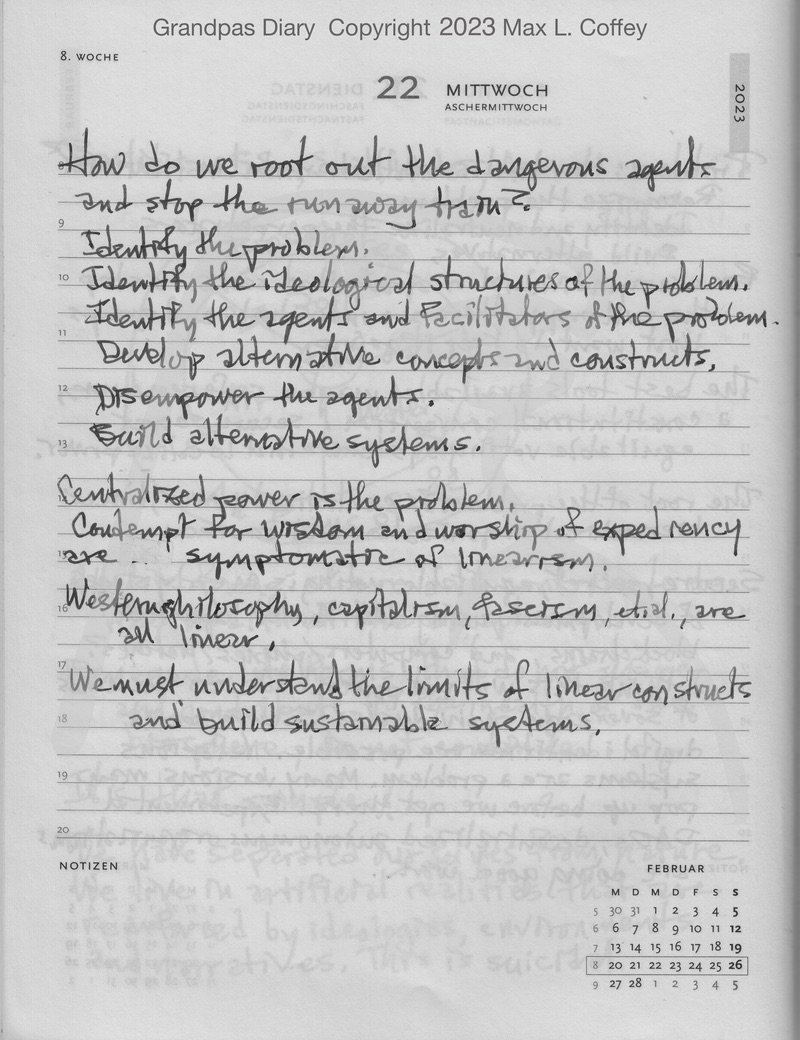 Grandpas Diary Copyright 2023 Max L. Coffey
8. WOCHE
22 MITTWOCH
ASCHERMITTWOCH
2023
How do we root out the dangerous agents
and stop the runaway train?
9
Identify the problem.
10 Identify the ideological structures of the problem.
Identify the agents and facilitators of the problem.
11
Develop alternative concepts and constructs.
12
Disempower the agents.
13 Build alternative systems.
Centralized power is the problem.
Contempt for wisdom and worship of expediency
are .. symptomatic of linearism.
Western philosophy, capitalism, fascism, et.al., are
16
all linear.
17
We must understand the limits of linear constructs
18 and build sustainable systems.
19
20
NOTIZEN
FEBRUAR
M D M D F S S
5 30 31 1 2 3 4 5
6 6 7 8 9 10 11 12
7 13 14 15 16 17 18 19
8 20 21 22 23 24 25 26
9 27 28 1 2 3 4 5